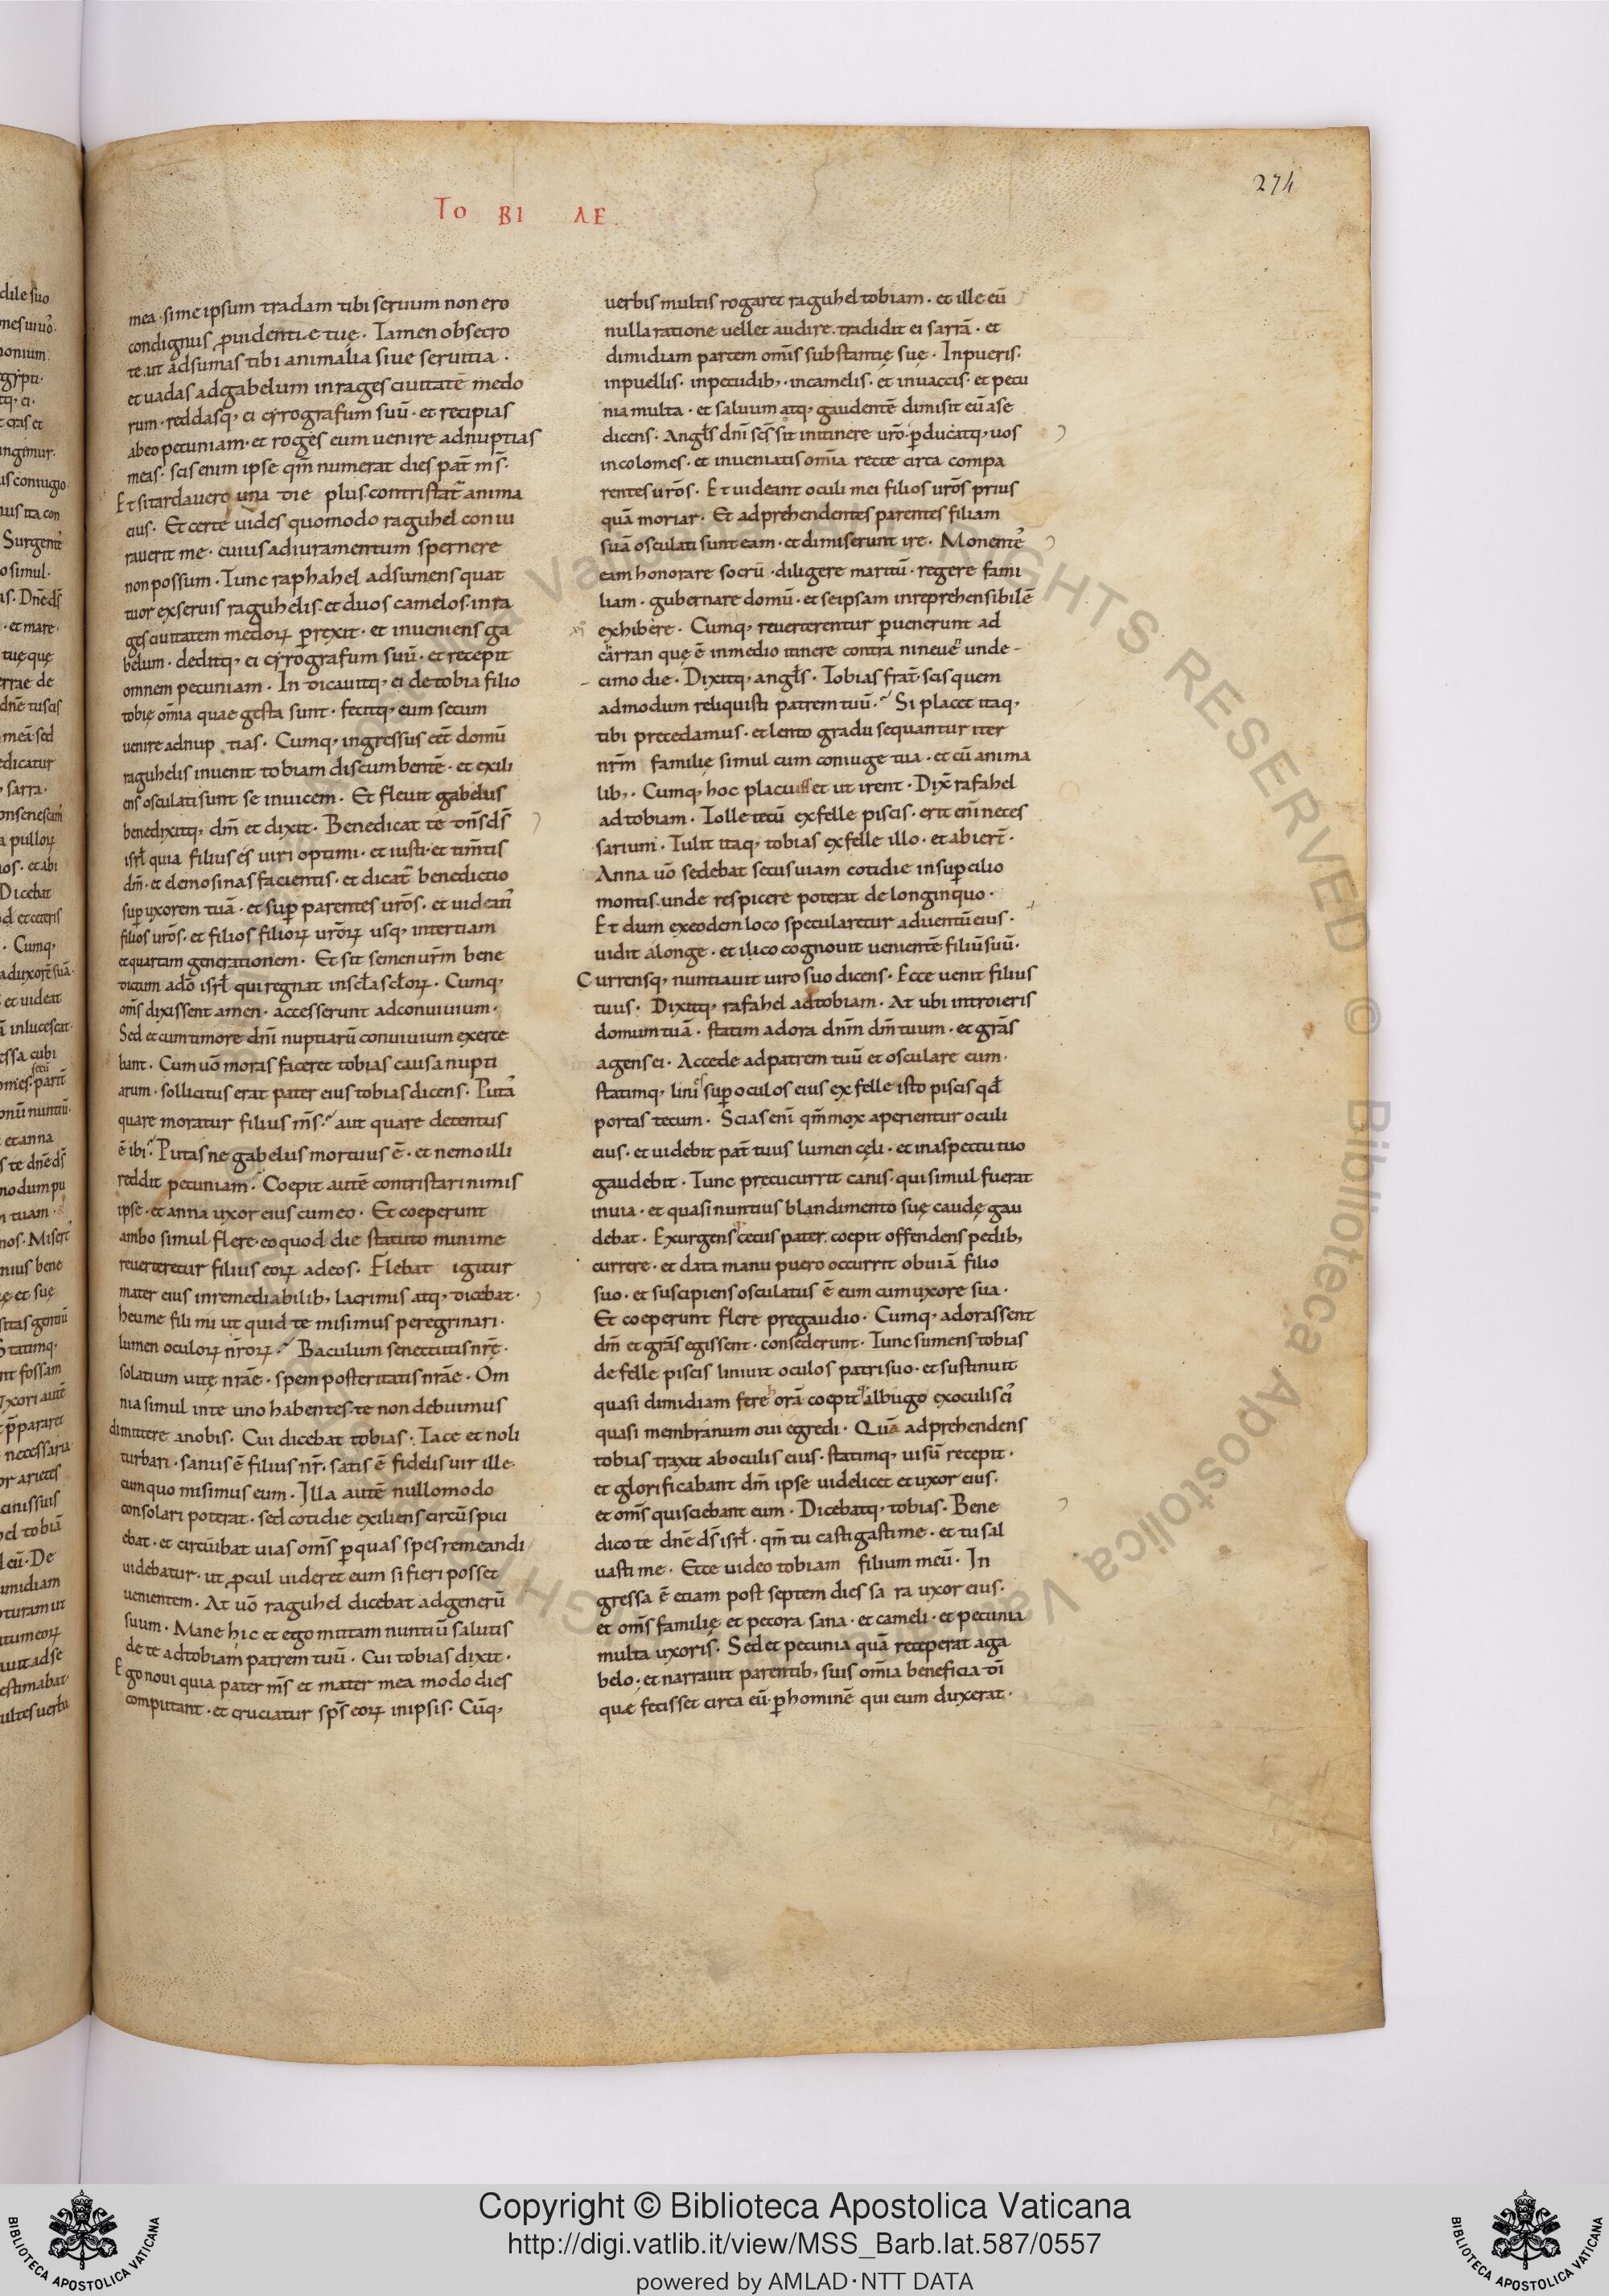 274
TO BI AE
mea · si me ipsum tradam tibi seruum non ero
condignus ꝓuidentię tuę · Tamen obsecro
te · ut adsumas tibi animalia siue seruitia ·
et uadas ad gabelum in rages ciuitatē medo
rum · reddasq; ei cyrografum suū · et recipias
ab eo pecuniam · et roges eum uenire ad nuptias
meas · scis enim ipse qm̄ numerat dies pat̄ ms̄ ·
Et si tardauero una die plus · contristat̄ anima
eius · Et certe uides quomodo raguhel coniu
rauerit me · cuius adiuramentum spernere
non possum · Tunc raphahel adsumens quat
tuor ex seruis raguhelis · et duos camelos · in ra
ges ciuitatem medoꝝ perrexit · et inueniens ga
belum · deditq; ei cyrografum suū · et recepit
omnem pecuniam · Indicauitq; ei de tobia filio
tobię om̄ia quae gesta sunt · fecitq; eum secum
uenire ad nup tias · Cumq; ingressus eēt domū
raguhelis inuenit tobiam discumbentē · et exili
ens osculati sunt se inuicem · Et fleuit gabelus
benedixitq; dm̄ et dixit · Benedicat te dn̄s ds̄
isrl̄ quia filius es uiri optimi · et iusti · et tim̄tis
dm̄ · et elemosinas facientis · et dicat̄ benedictio
suꝑ uxorem tuā · et suꝑ parentes uros̄ · et uideatis
filios uros̄ · et filios filioꝝ uroꝝ̄ usq; in tertiam
et quartam generationem · Et sit semen urm̄ bene
dictum a dō isrl̄ qui regnat in scl̄a scl̄oꝝ · Cumq;
oms̄ dixissent amen · accesserunt ad conuiuium ·
Sed et cum timore dn̄i nuptiarū conuiuium exerce
bant · Cum uō moras faceret tobias causa nupti
arum · sollicitus erat pater eius tobias dicens · Putas
quare moratur filius ms̄ · aut quare detentus
ē ibi · Putasne gabelus mortuus ē · et nemo illi
reddit pecuniam · Coepit autē contristari nimis
ipse · et anna uxor eius cum eo · Et coeperunt
ambo simul flere · eo quod die statuto minime
reuerteretur filius eoꝝ ad eos · Flebat igitur
mater eius inremediabilib; lacrimis atq; dicebat ·
heu me fili mi ut quid te misimus peregrinari ·
lumen oculoꝝ nr̄oꝝ · Baculum senectutis nrę̄ ·
solatium uitę nrāe · spem posteritatis nrāe · Om
nia simul in te uno habentes · te non debuimus
dimittere a nobis · Cui dicebat tobias · Tace et noli
turbari · sanus ē filius nr̄ · satis ē fidelis uir ille ·
cum quo misimus eum · Illa autē nullo modo
consolari poterat · sed cotidie exiliens circūspici
ebat · et circuibat uias oms̄ ꝑ quas spes remeandi
uidebatur · ut ꝓcul uideret eum si fieri posset
uenientem · At uō raguhel dicebat ad generū
suum · Mane hic et ego mittam nuntiū salutis
de te ad tobiam patrem tuū · Cui tobias dixit ·
Ego noui quia pater ms̄ et mater mea modo dies
computant · et cruciatur sps̄ eoꝝ in ipsis · Cūq;
uerbis multis rogaret raguhel tobiam · et ille eū
nulla ratione uellet audire · tradidit ei sarrā · et
dimidiam partem om̄is substantię suę · In pueris ·
in puellis · in pecudib; · in camelis · et in uaccis · et pecu
nia multa · et saluum atq; gaudentē dimisit eū a se
dicens · Angl̄s dn̄i scs̄ sit in itinere urō · ꝑducatq; uos
incolomes · et inueniatis om̄ia recte circa compa
rentes uros̄ · Et uideant oculi mei filios uros̄ prius
quā moriar · Et adprehendentes parentes filiam
suā osculati sunt eam · et dimiserunt ire · Monentes
eam honorare socrū · diligere maritū · regere fami
liam · gubernare domū · et se ipsam inreprehensibilē
exhibere · Cumq; reuerterentur ꝑuenerunt ad
carran quę ē in medio itinere contra nineuē unde
cimo die · Dixitq; angl̄s · Tobias frat̄ · scis quem
admodum reliquisti patrem tuū · Si placet itaq;
tibi precedamus · et lento gradu sequantur iter
nrm̄ familię simul cum coniuge tua · et cū anima
lib; · Cumq; hoc placuisset ut irent · Dix̄ rafahel
ad tobiam · Tolle tecū ex felle piscis · erit enī neces
sarium · Tulit itaq; tobias ex felle illo · et abiert̄ ·
Anna uō sedebat secus uiam cotidie in suꝑcilio
montis · unde respicere poterat de longinquo ·
Et dum ex eodem loco specularetur aduentū eius ·
uidit a longe · et ilico cognouit uenientē filiū suū ·
Currensq; nuntiauit uiro suo dicens · Ecce uenit filius
tuus · Dixitq; rafahel ad tobiam · At ubi introieris
domum tuā · statim adora dnm̄ dm̄ tuum · et grās
agens ei · Accede ad patrem tuū et osculare eum ·
statimq; lini suꝑ oculos eius ex felle isto piscis qd̄
portas tecum · Scias enī qm̄ mox aperientur oculi
eius · et uidebit pat̄ tuus lumen cęli · et in aspectu tuo
gaudebit · Tunc precucurrit canis · qui simul fuerat
in uia · et quasi nuntius blandimento suę caudę gau
debat · Exurgens cecus pater · coepit offendens pedib;
currere · et data manu puero occurrit obuiā filio
suo · et suscipiens osculatus ē eum cum uxore sua ·
Et coeperunt flere pre gaudio · Cumq; adorassent
dm̄ et grās egissent · consederunt · Tunc sumens tobias
de felle piscis liniuit oculos patri suo · et sustinuit
quasi dimidiam fere orā coepit albugo ex oculis ei'
quasi membranum oui egredi · Quā adprehendens
tobias traxit ab oculis eius · statimq; uisū recepit ·
et glorificabant dm̄ ipse uidelicet et uxor eius ·
et oms̄ qui sciebant eum · Dicebatq; tobias · Bene
dico te dnē ds̄ isrl̄ · qm̄ tu castigasti me · et tu sal
uasti me · Ecce uideo tobiam filium meū · In
gressa ē etiam post septem dies sa ra uxor eius ·
et oms̄ familię et pecora sana · et cameli · et pecunia
multa uxoris · Sed et pecunia quā receperat a ga
belo · et narrauit parentib; suis om̄ia beneficia dī
quæ fecisset circa eū ꝑ hominē qui eum duxerat ·
Copyright © Biblioteca Apostolica Vaticana
http://digi.vatlib.it/view/MSS_Barb.lat.587/0557
powered by AMLAD·NTT DATA